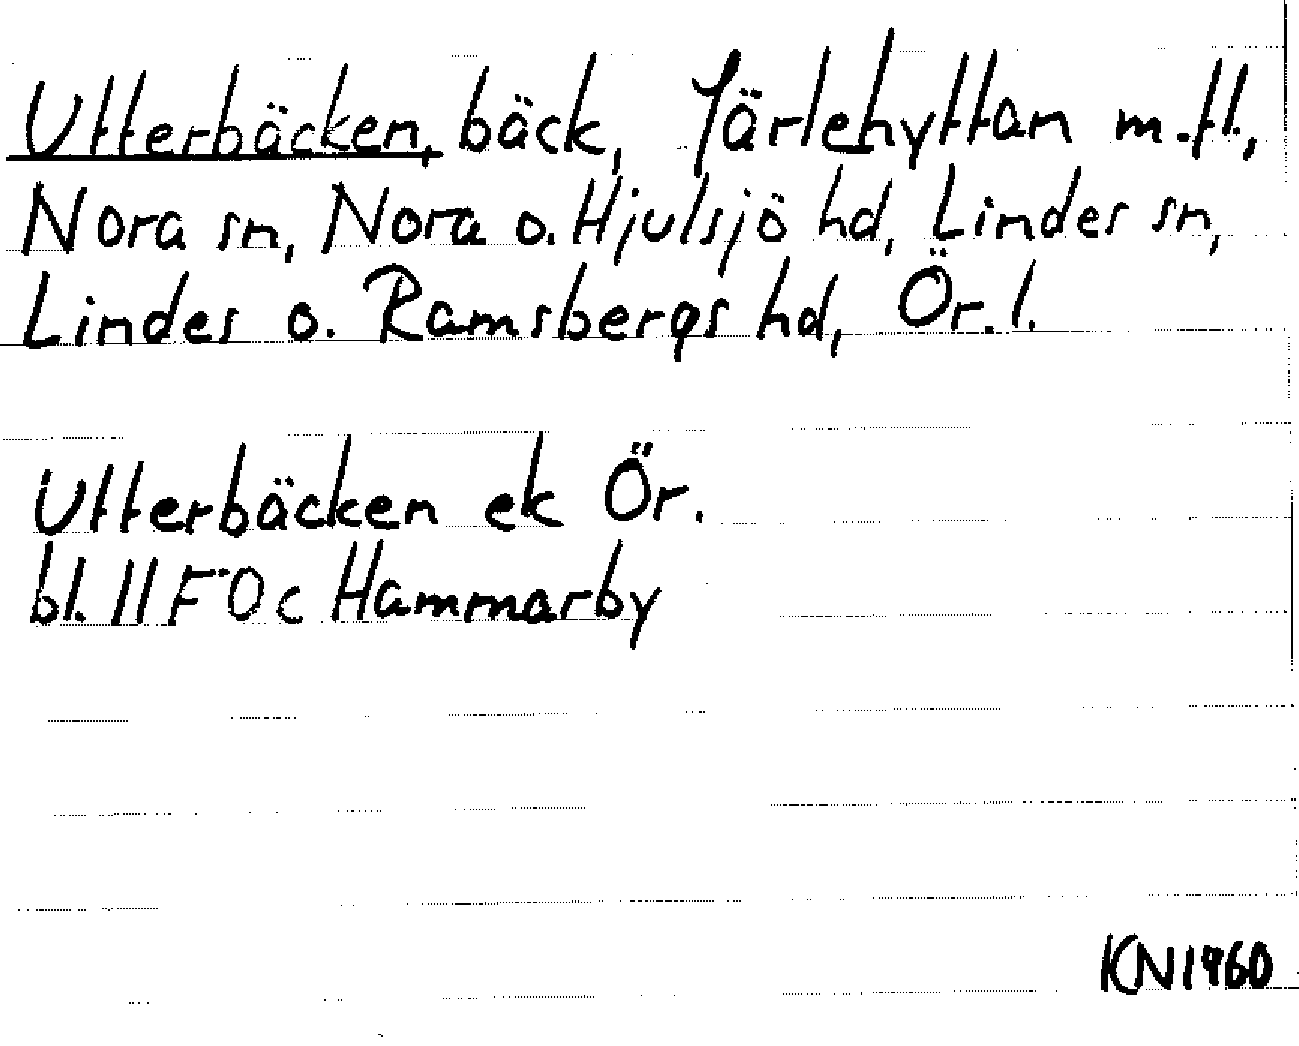 Utterbäcken, bäck, Järlehyttan m.fl.,
Nora sn, Nora o. Hjulsjö hd, Lindes sn,
Lindes o. Ramsbergs hd, Ör. l.
Utterbäcken ek Ör.
bl. 11F 0c Hammarby
KN1960